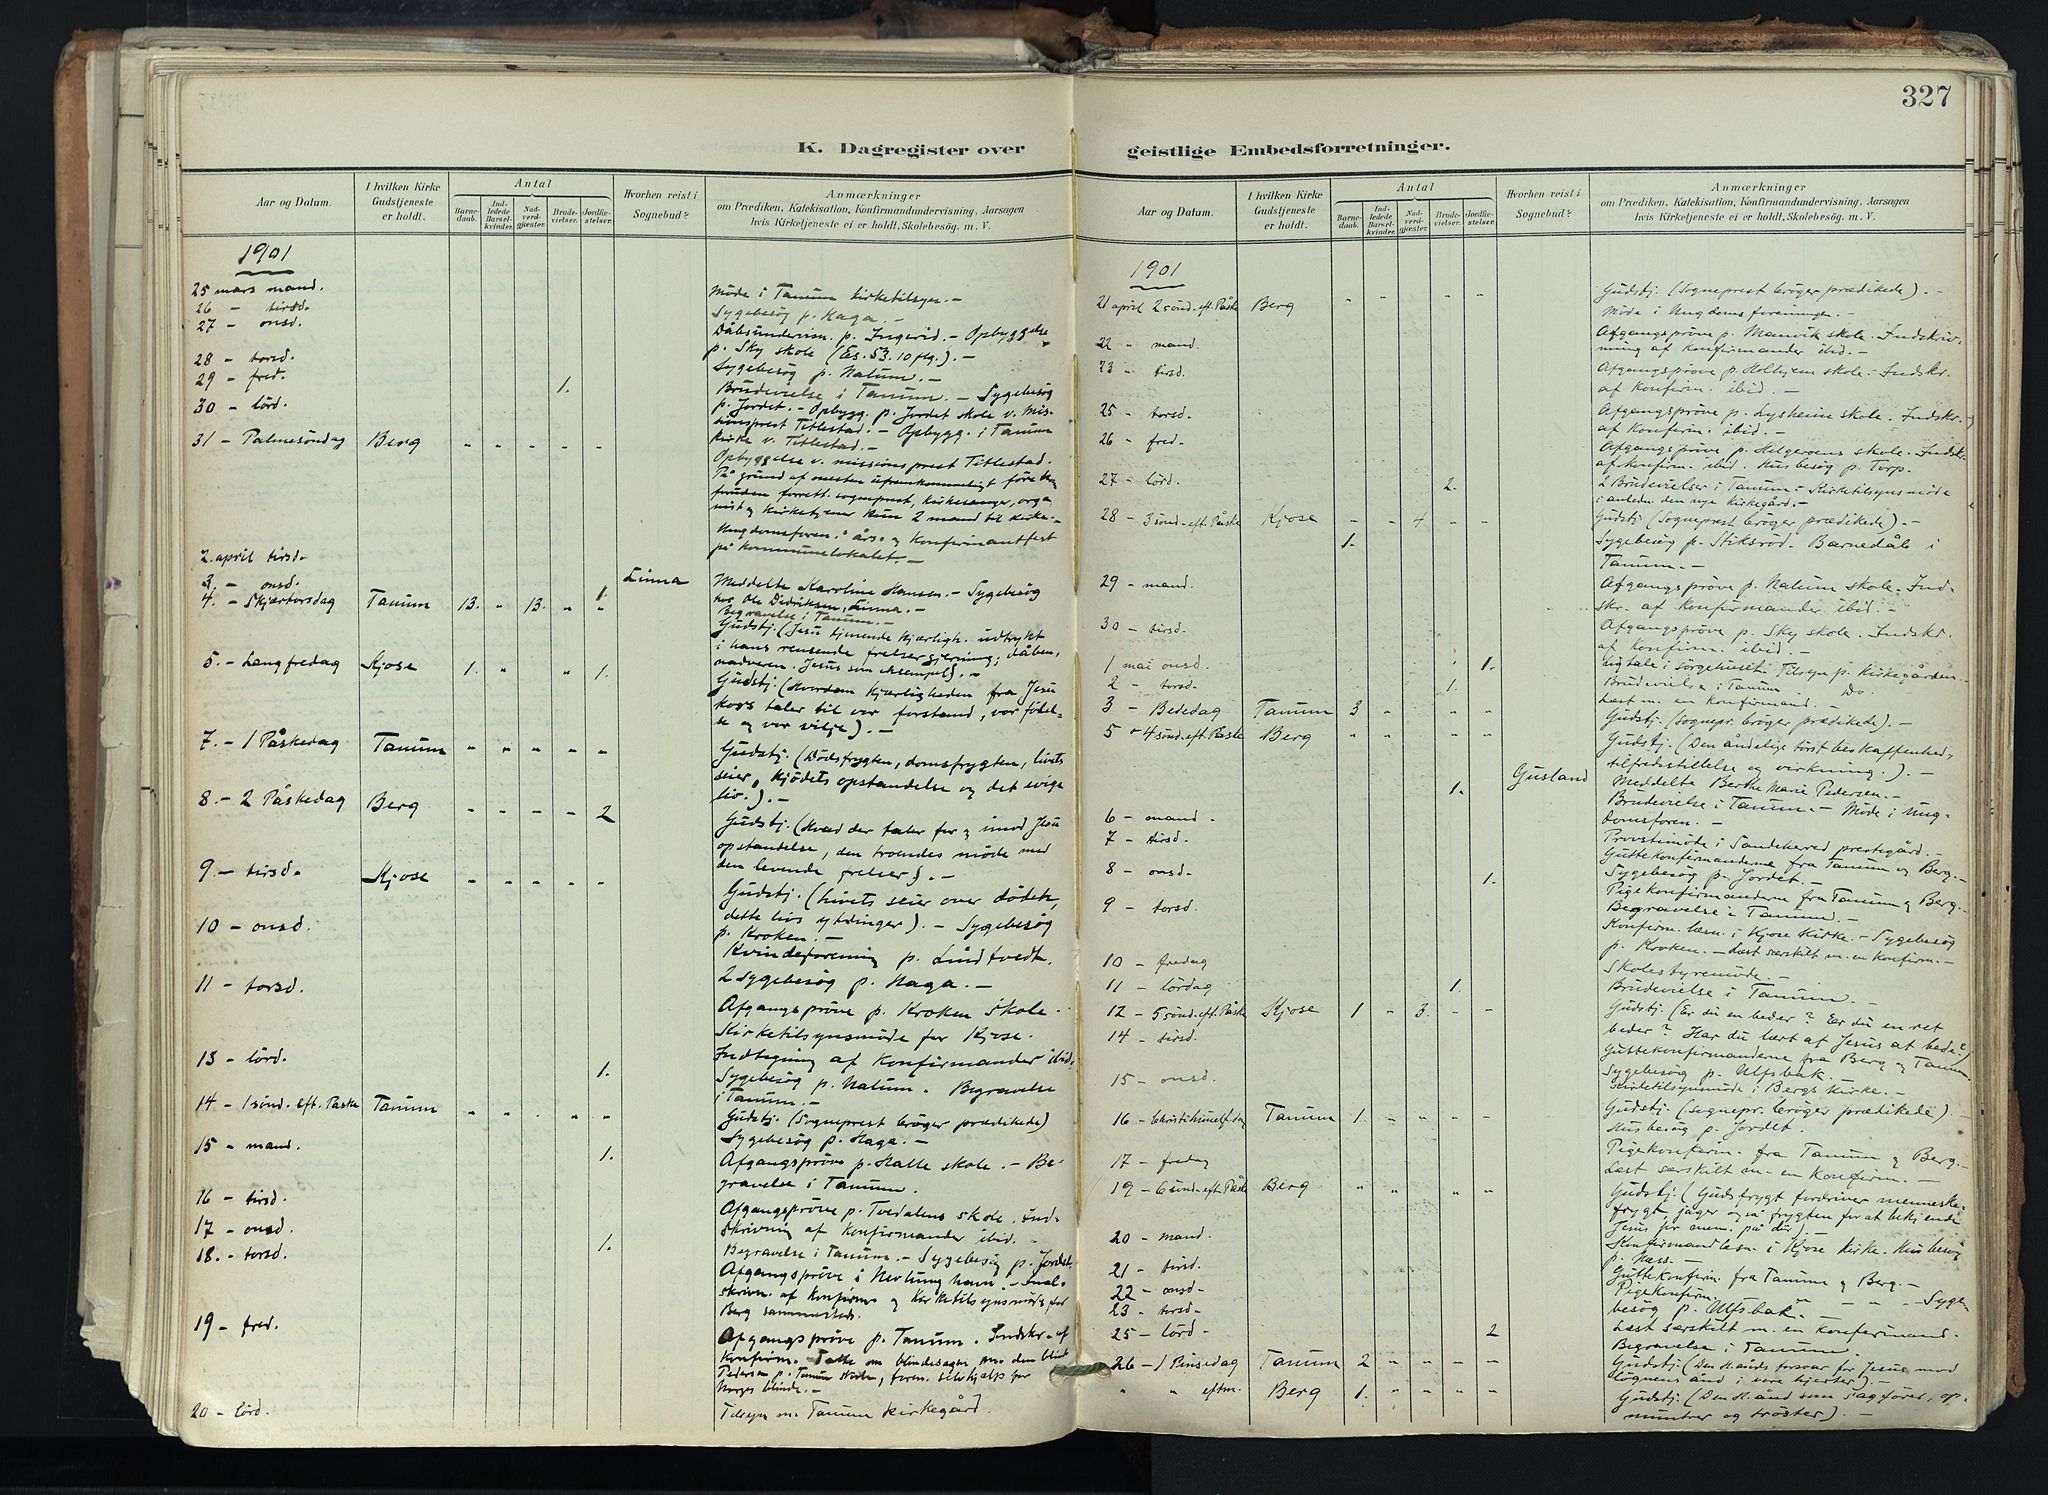 327
K. Dagregister over geistlige Embedsforretninger.
Aar og Datum.
I hvilken Kirke Gudstjeneste er holdt.
Antal
Barnedaab.
Indledede Barselkvinder.
Nadverdgjæster.
Brudevielser.
Jordfæstelser.
Hvorhen reist i Sognebud?
Anmærkninger
om Prædiken, Katekisation, Konfirmandundervisning, Aarsagen
hvis Kirketjeneste ei er holdt, Skolebesög. m. V.
1901
25 mars mand. Möde i Tanum kirketilsyn. –
26 – tirsd. Sygebesög p. Haga. –
27 – onsd. Dåbsundervisn. p. Ingerid. – Opbyggelse
p. Sky skole (Es. 53. 10 flg.). –
28 – torsd. Sygebesög p. Nalum. –
29 – fred. 1. Brudevielse i Tanum. – Sygebesög
30 – lörd. p. Jordet. – Opbygg. p. Jordet skole v. Mis-
sionsprest Titlestad. – Opbygg. i Tanum
31 – Palmesöndag Berg kirke v. Titlestad. –
Opbyggelse v. missionsprest Titlestad.
På grund af næsten ufremkommeligt före
foruden forrett. sogneprest, kirkesanger, orga-
nist og kirketjener kun 2 mand til kirke –
2. april tirsd. Ungdomsforen.s års- og Konfirmantfest
på kommunelokalet. –
3. – onsd. 1. Linna Meddelte Karoline Hansen. – Sygebesög
hos Ole Didriksen, Linna. –
Begravelse i Tanum. –
4. – Skjærtorsdag Tanum 13. " 13. " " Gudstj. (Jesu tjenende kjærligh. udtrykt
i hans rensende frelsergjerning; dåben,
nadveren. Jesus som exempel). –
5. – Langfredag Kjose 1. " " 1. Gudstj. (Hvordan kjærligheden fra Jesu
kors taler til vor forstand, vor fölel-
se og vor vilje). –
7. – 1 Påskedag Tanum Gudstj. (Dödsfrygten, domsfrygten, livets
seier, kjödets opstandelse og det evige
liv.). –
8. – 2 Påskedag Berg 2 Gudstj. (Hvad der taler for og imod Jesu
opstandelse, den troendes möde med
den levende frelser). –
9. – tirsd. Kjose Gudstj. (Livets seier over döden,
dette livs ytringer). – Sygebesög
p. Kroken. –
10 – onsd. Kvindeforening p. Lindtvedt.
2 sygebesög p. Haga. –
11 – torsd. Afgangspröve p. Kroken Skole.
Kirketilsynsmöde for Kjose.
Indtegning af Konfirmander ibid.
13 – lörd. 1. Sygebesög p. Nalum. Begravelse
i Tanum. –
14 – 1 sönd. eft. Påske Tanum Gudstj. (Sogneprest Cröger prædikede)
Sygebesög p. Haga. –
15 – mand. 1. Afgangspröve p. Halle skole. – Be-
gravelse i Tanum.
16 – tirsd. Afgangspröve p. Tvedalens skole. Ind-
skrivning af Konfirmander ibid. –
17 – onsd.
18. – torsd. 1. Begravelse i Tanum. – Sygebesög p. Jordet.
Afgangspröve i Nevlunghavn. – Ind-
skrivn. af Konfirm. og Kirketilsynsmöde for
Berg sammesteds.
19 – fred. Afgangspröve p. Tanum. Indskr. af
Konfirm. Tale om blindesagen, m. den blinde
Pedersen p. Tanum skole, foren. selvhjælp for
Norges blinde. –
20 – lörd. Tilsyn m. Tanum Kirkegård.
Aar og Datum.
I hvilken Kirke Gudstjeneste er holdt.
Antal
Barnedaab.
Indledede Barselkvinder.
Nadverdgjæster.
Brudevielser.
Jordfæstelser.
Hvorhen reist i Sognebud?
Anmærkninger
om Prædiken, Katekisation, Konfirmandundervisning, Aarsagen
hvis Kirketjeneste ei er holdt, Skolebesög. m. V.
1901
21 april 2 sönd. eft. Påske Berg Gudstj. (Sogneprest Cröger prædikede). –
Möde i Ungdomsforeningen. –
22 – mand. Afgangspröve p. Manvik skole. Indskriv-
ning af Konfirmander ibid. –
23 – tirsd. Afgangspröve p. Holhjem skole. – Indskr.
af Konfirm. ibid. –
25 – torsd. Afgangspröve p. Lysheim skole. Indskr.
af Konfirm. ibid. –
26 – fred. Afgangspröve p. Helgeroens skole. Indskr.
af Konfirm. ibid. Husbesög p. Torp.
27 – lörd. 2. 2 Brudevielser i Tanum. – Kirketilsynsmöde
i anledn. den nye Kirkegård. –
28 – 3 sönd. eft. Påske Kjose " " 4 " " Gudstj (Sogneprest Cröger prædikede). –
1. Sygebesög p. Stiksröd. Barnedåb i
Tanum. –
29 – mand. Afgangspröve p. Nalum skole. Ind-
skr. af Konfirmander ibid. –
30 – tirsd. Afgangspröve p. Sky skole. Indskr.
af Konfirm. ibid. –
1 mai onsd. 1. Ligtale i sörgehuset. Tilsyn p. Kirkegården.
2 – torsd. 1. Brudevielse i Tanum. Do.
Læst m. en Konfirmand. –
3 – Bededag Tanum 3 Gudstj. (Sognepr. Cröger prædikede). –
5 – 4 sönd. eft. Påske Berg Gudstj. (Den åndelige törst beskaffenhed,
tilfredsstillelse og virkning.). –
Gusland Meddelte Berthe Marie Pedersen. –
1. Brudevielse i Tanum. – Möde i Ung-
domsforen. –
6 – mand. Provstimöde i Sandeherred prestegård. –
7 – tirsd. Guttekonfirmanderne fra Tanum og Berg. –
Sygebesög p. Jordet. –
8 – onsd. 1. Pigekonfirmanderne fra Tanum og Berg. –
Begravelse i Tanum. –
9 – torsd. Konfirm. læsn. i Kjose Kirke. – Sygebesög
p. Kroken. – Læst særskilt m. en Konfirm. –
10 – fredag Skolestyremöde. –
11 – lördag 1. Brudevielse i Tanum. –
12 – 5 sönd. eft. Påske Kjose 1 " 3. Gudstj. (Er du en beder? Er du en ret
beder? Har du lært af Jesus at bede?)
14 – tirsd. Guttekonfirmanderne fra Berg og Tanum
Sygebesög p. Ulfsbak.
15 – onsd. Kirketilsynsmöde i Bergs Kirke. –
16 – Christi himmelf. dag Tanum 1. Gudstj. (Sognepr. Cröger prædikede) –
Husbesög p. Jordet.
17 – fredag Pigekonfirm. fra Tanum og Berg. –
Læst særskilt m. en Konfirm. –
19 – 6 sönd. eft. Påske Berg Gudstj. (Gudsfrygt fordriver menneske-
frygt, jager også frygten for at bekjende
Jesus for men. på dör)
20 – mand. Konfirmandlæsn. i Kjose Kirke. Husbesög
p. Næss. –
21 – tirsd. Guttekonfirm. fra Tanum og Berg. –
22 – onsd. Pigekonfirm. " – " – Syge-
23 – torsd. besög p. Ulfsbak.
Læst særskilt m. en Konfirmand.
25 – lörd. 2 Begravelse i Tanum.
26 – 1 Pinsedag Tanum 2 Gudstj. (Den H. ånds forsvar for Jesus mod
lögnens ånd i vore hjerter). –
" " eftm. Berg 1. Gudstj. (Den H. ånd som sagförer, op-
muntrer og tröster). –